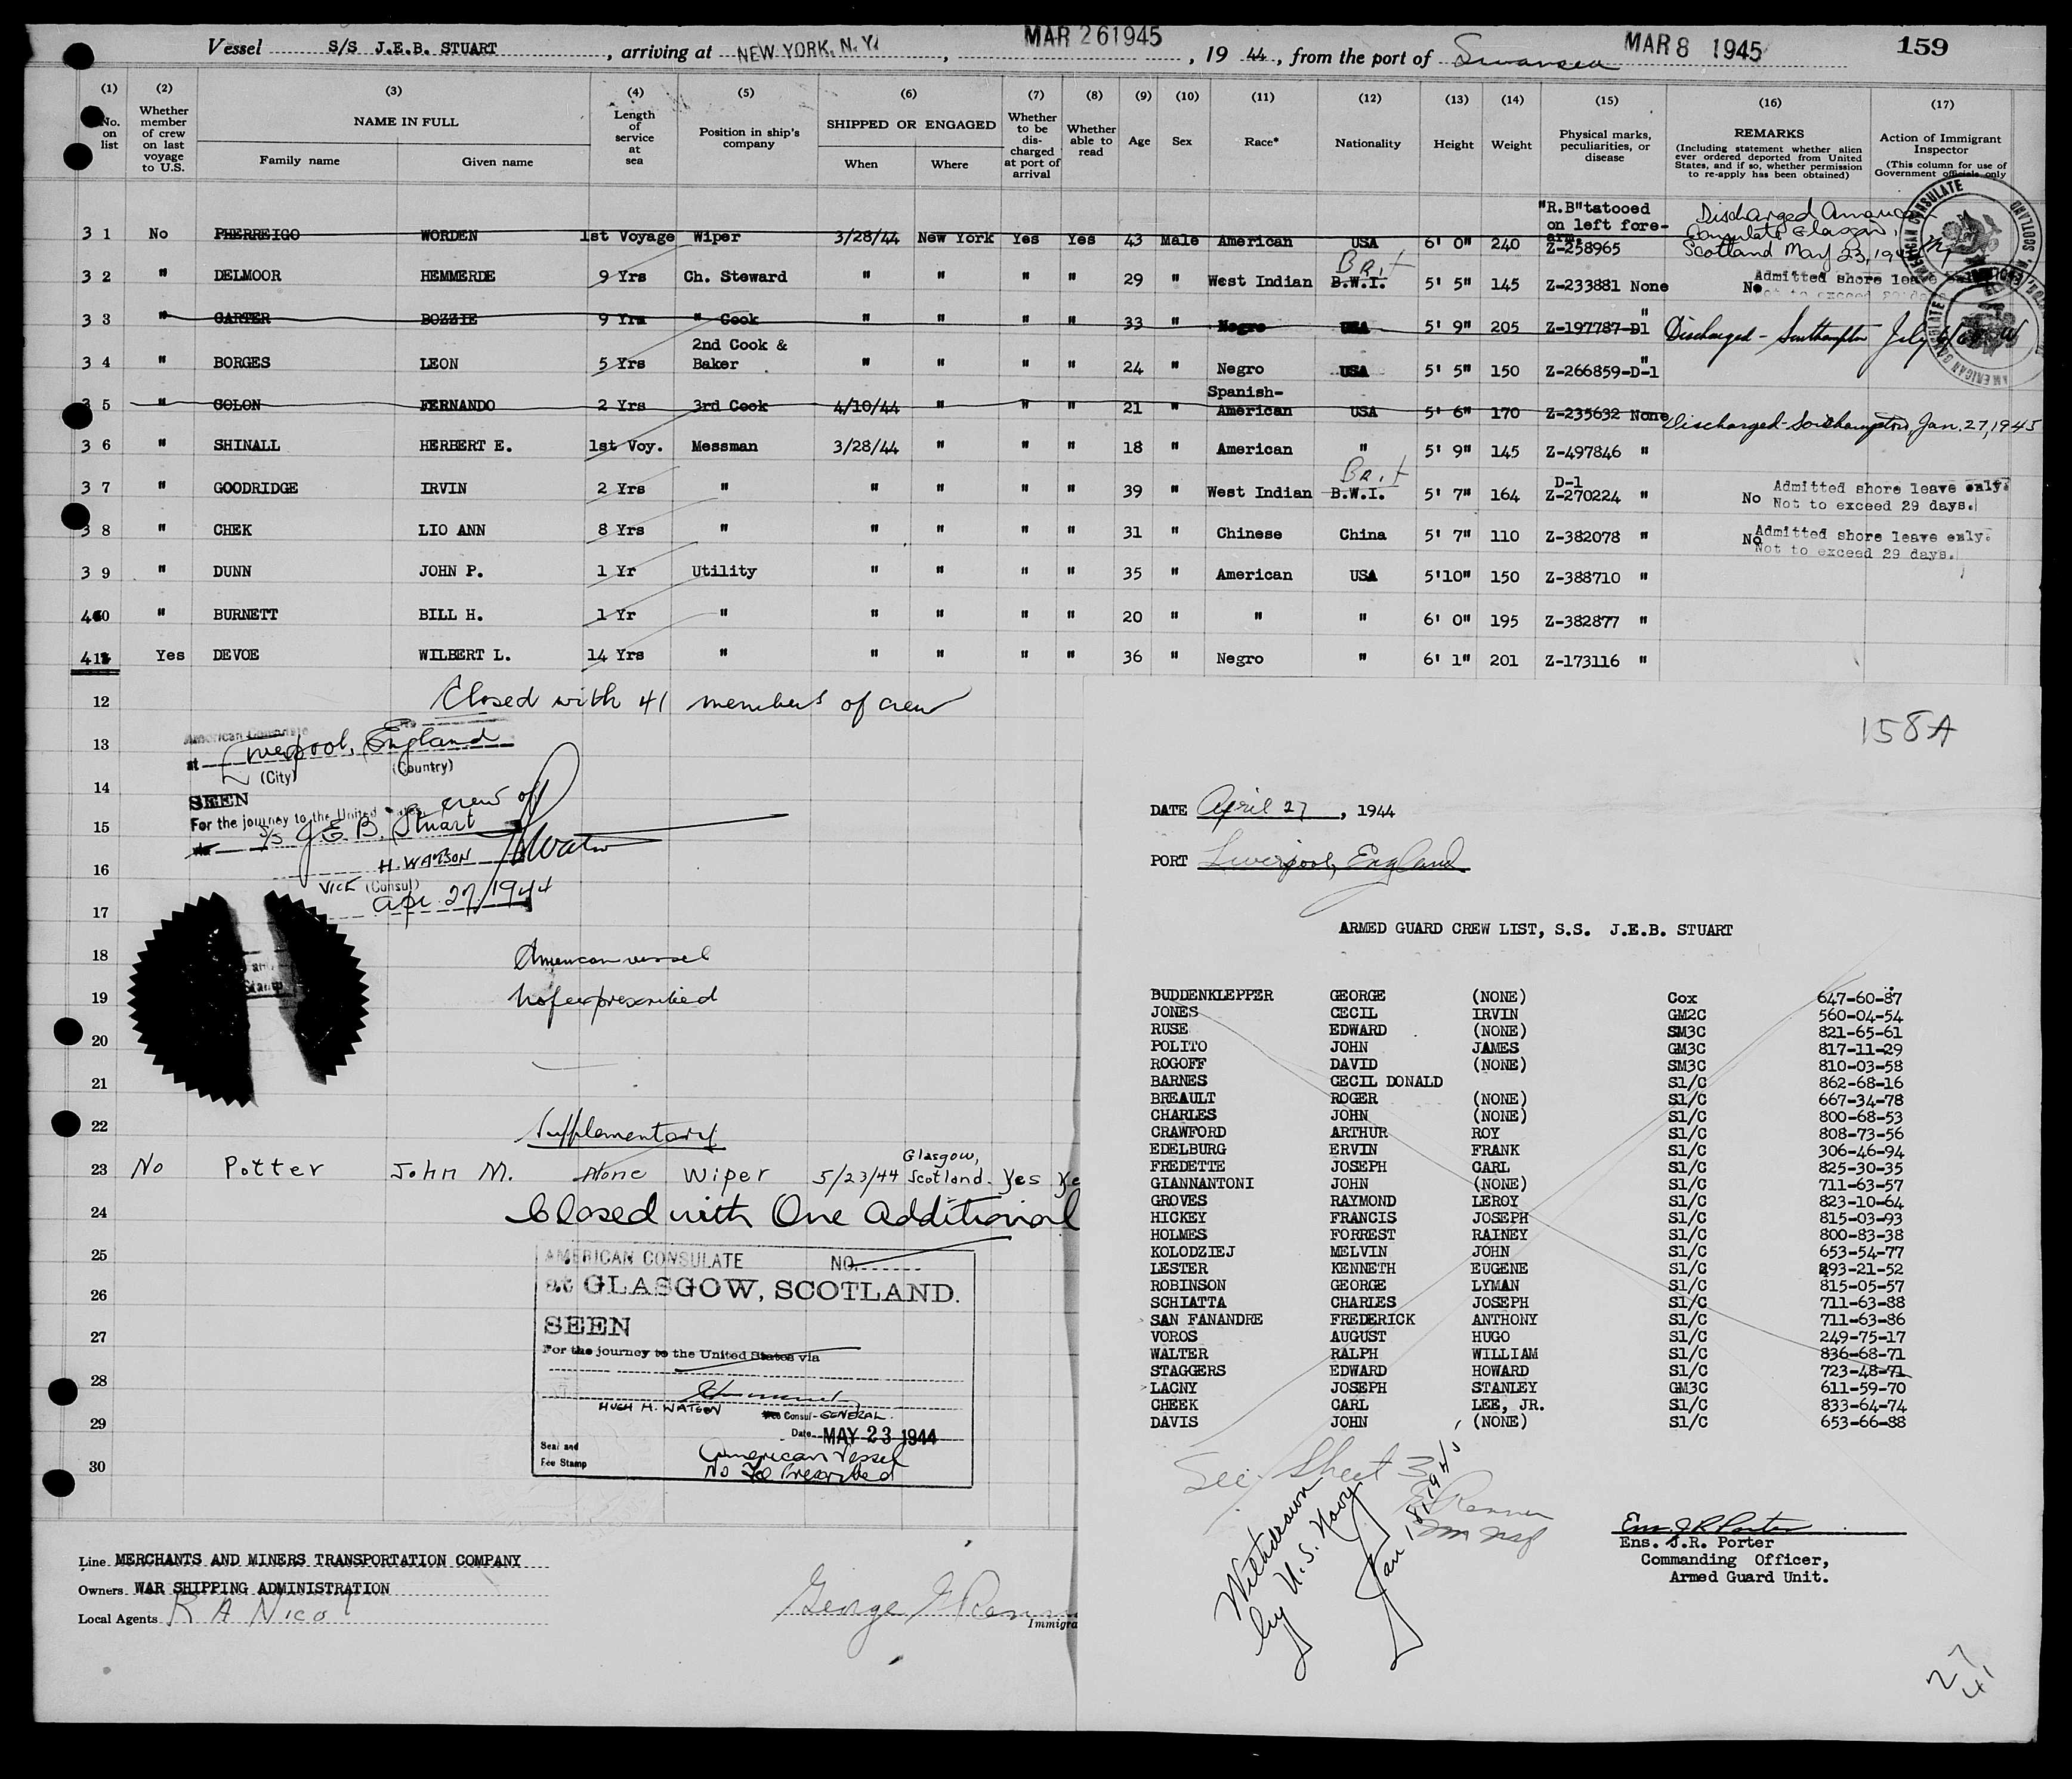 Vessel S/S J.E.B. STUART , arriving at NEW YORK, N.Y. , MAR 26 1945 , 19 44 , from the port of Swansea MAR 8 1945 159
(1) (2) (3) (4) (5) (6) (7) (8) (9) (10) (11) (12) (13) (14) (15) (16) (17)
No. on list
Whether member of crew on last voyage to U.S.
NAME IN FULL
Family name Given name
Length of service at sea
Position in ship's company
SHIPPED OR ENGAGED
When Where
Whether to be discharged at port of arrival
Whether able to read
Age
Sex
Race*
Nationality
Height
Weight
Physical marks, peculiarities, or disease
REMARKS
(Including statement whether alien ever ordered deported from United States, and if so, whether permission to re-apply has been obtained)
Action of Immigrant Inspector
(This column for use of Government officials only
31 No PHERREIGO WORDEN 1st Voyage Wiper 3/28/44 New York Yes Yes 43 Male American USA 6' 0" 240 "R.B" tatooed on left fore-arm. Z-258965 Discharged American Consulate Glasgow, Scotland May 23, 1944
32 " DELMOOR HEMMERDE 9 Yrs Ch. Steward " " " " 29 " West Indian B.W.I. Brit 5' 5" 145 Z-233881 None No Admitted shore leave only. Not to exceed 29 days.
33 " CARTER BOZZIE 9 Yrs " Cook " " " " 33 " Negro USA 5' 9" 205 Z-197787-D1 " Discharged - Southampton July
34 " BORGES LEON 5 Yrs 2nd Cook & Baker " " " " 24 " Negro USA 5' 5" 150 Z-266859-D-1 "
35 " COLON FERNANDO 2 Yrs 3rd Cook 4/10/44 " " " 21 " Spanish-American USA 5' 6" 170 Z-235632 None Discharged-Southampton, Jan. 27, 1945
36 " SHINALL HERBERT E. 1st Voy. Messman 3/28/44 " " " 18 " American " 5' 9" 145 Z-497846 "
37 " GOODRIDGE IRVIN 2 Yrs " " " " " 39 " West Indian B.W.I. Brit 5' 7" 164 D-1 Z-270224 " No Admitted shore leave only. Not to exceed 29 days.
38 " CHEK LIO ANN 8 Yrs " " " " " 31 " Chinese China 5' 7" 110 Z-382078 " No Admitted shore leave only. Not to exceed 29 days.
39 " DUNN JOHN P. 1 Yr Utility " " " " 35 " American USA 5'10" 150 Z-388710 "
40 " BURNETT BILL H. 1 Yr " " " " " 20 " " " 6' 0" 195 Z-382877 "
41 Yes DEVOE WILBERT L. 14 Yrs " " " " " 36 " Negro " 6' 1" 201 Z-173116 "
AMERICAN CONSULATE
SCOTLAND
12 Closed with 41 members of crew
13
American Consulate
at Liverpool, England
(City) (Country)
14
SEEN
For the journey to the United States
crew of
15
S/S J.E.B. Stuart
H. WATSON
16
VICE (Consul)
Apr. 27, 1944
17
18 American vessel
19 No fee prescribed
20
21
22 Supplementary
23 No Potter John M. None Wiper 5/23/44 Glasgow, Scotland. Yes Ye
24 Closed with One Additional
25 AMERICAN CONSULATE NO.
at GLASGOW, SCOTLAND.
26
SEEN
27
For the journey to the United States via
28
HUGH H. WATSON Consul-GENERAL.
29
Date MAY 23 1944
Seal and Fee Stamp
American Vessel
No Fee Prescribed
30
Line MERCHANTS AND MINERS TRANSPORTATION COMPANY
Owners WAR SHIPPING ADMINISTRATION
Local Agents R A Nicol
George
Immigra
158A
DATE April 27 , 1944
PORT Liverpool, England
ARMED GUARD CREW LIST, S.S. J.E.B. STUART
BUDDENKLEPPER GEORGE (NONE) Cox 647-60-87
JONES CECIL IRVIN GM2C 560-04-54
RUSE EDWARD (NONE) SM3C 821-65-61
POLITO JOHN JAMES GM3C 817-11-29
ROGOFF DAVID (NONE) SM3C 810-03-58
BARNES CECIL DONALD S1/C 862-68-16
BREAULT ROGER (NONE) S1/C 667-34-78
CHARLES JOHN (NONE) S1/C 800-68-53
CRAWFORD ARTHUR ROY S1/C 808-73-56
EDELBURG ERVIN FRANK S1/C 306-46-94
FREDETTE JOSEPH CARL S1/C 825-30-35
GIANNANTONI JOHN (NONE) S1/C 711-63-57
GROVES RAYMOND LEROY S1/C 823-10-64
HICKEY FRANCIS JOSEPH S1/C 815-03-93
HOLMES FORREST RAINEY S1/C 800-83-38
KOLODZIEJ MELVIN JOHN S1/C 653-54-77
LESTER KENNETH EUGENE S1/C 293-21-52
ROBINSON GEORGE LYMAN S1/C 815-05-57
SCHIATTA CHARLES JOSEPH S1/C 711-63-88
SAN FANANDRE FREDERICK ANTHONY S1/C 711-63-86
VOROS AUGUST HUGO S1/C 249-75-17
WALTER RALPH WILLIAM S1/C 836-68-71
STAGGERS EDWARD HOWARD S1/C 723-48-71
LACNY JOSEPH STANLEY GM3C 611-59-70
CHEEK CARL LEE, JR. S1/C 833-64-74
DAVIS JOHN (NONE) S1/C 653-66-88
See Sheet 3
Withdrawn
by U.S. Navy
Jan 18, 1945
Ens J R Porter
Ens. J.R. Porter
Commanding Officer,
Armed Guard Unit.
27
41